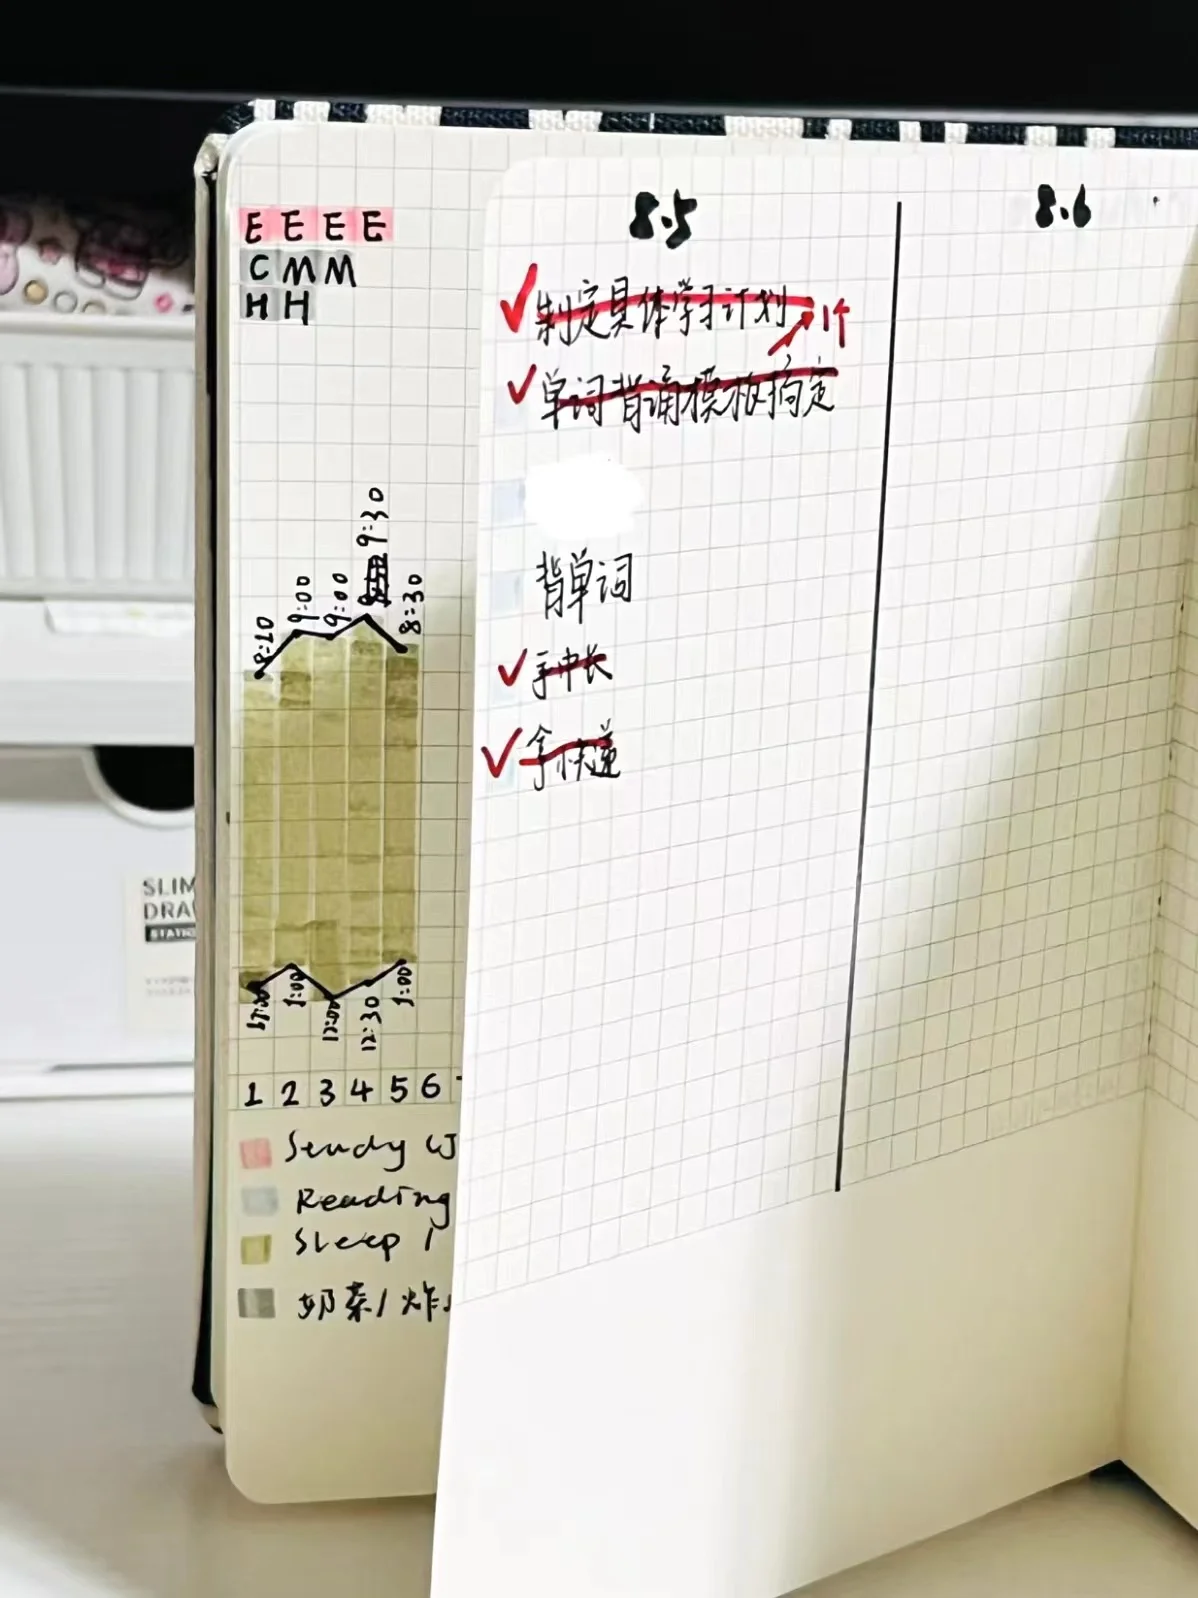 E E E E
C M M
H H
8:10
9:00
9:00
9:30
8:30
1:00
12:00
12:30
1:00
1 2 3 4 5 6
Study
Reading
Sleep
奶茶/炸
8.5
制定具体学习计划
1个
单词背诵模板搞定
背单词
手中长
拿快递
8.6
SLIM
DRA
STATIO